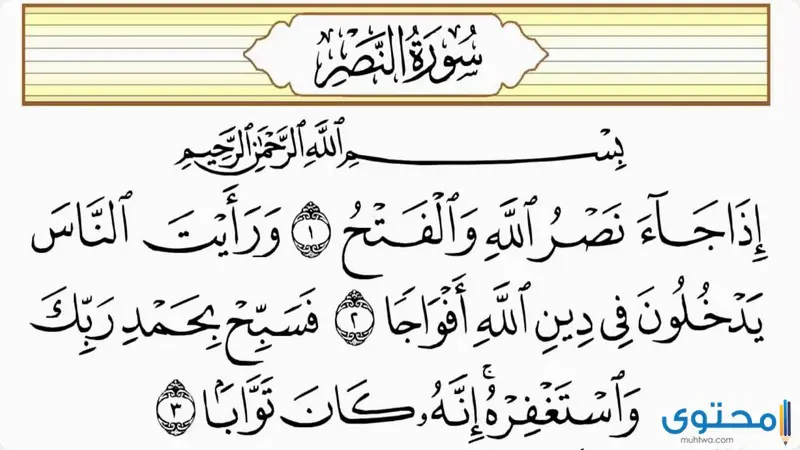 سُورَةُ النَّصْرِ
بِسْمِ اللَّهِ الرَّحْمَٰنِ الرَّحِيمِ
إِذَا جَآءَ نَصْرُ اللَّهِ وَالْفَتْحُ ١ وَرَأَيْتَ النَّاسَ
يَدْخُلُونَ فِي دِينِ اللَّهِ أَفْوَاجًا ٢ فَسَبِّحْ بِحَمْدِ رَبِّكَ
وَاسْتَغْفِرْهُ ۚ إِنَّهُۥ كَانَ تَوَّابًۢا ٣
محتوى
muhtwa.com